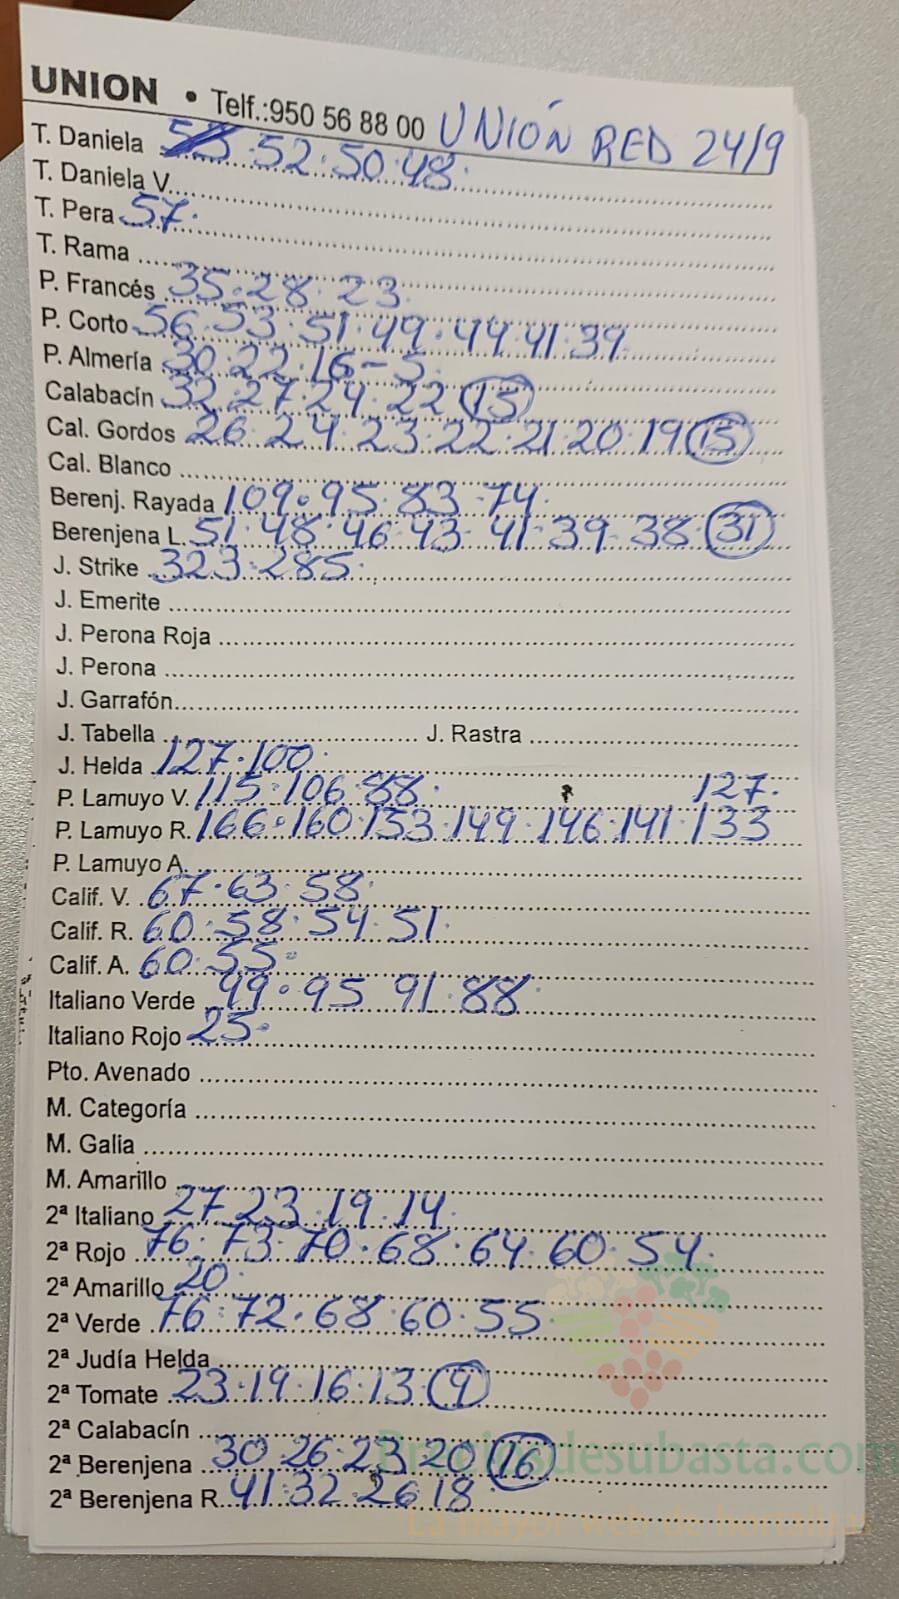 UNION • Telf.:950 56 88 00 UNIÓN RED 24/9
T. Daniela 52·50·48·
T. Daniela V.
T. Pera 57·
T. Rama
P. Francés 35·28·23
P. Corto 56·53·51·49·44·41·39
P. Almería 30·22·16-5·
Calabacín 32·27·24·22 15
Cal. Gordos 26·24·23·22·21·20·19 15
Cal. Blanco
Berenj. Rayada 109·95·83·74·
Berenjena L. 51·48·46·43·41·39·38 31
J. Strike 323·285·
J. Emerite
J. Perona Roja
J. Perona
J. Garrafón
J. Tabella J. Rastra
J. Helda 127·100·
P. Lamuyo V. 115·106·88· 127·
P. Lamuyo R. 166·160·153·149·146·141·133
P. Lamuyo A.
Calif. V. 67·63·58·
Calif. R. 60·58·54·51·
Calif. A. 60·55·
Italiano Verde 99·95 91·88·
Italiano Rojo 25·
Pto. Avenado
M. Categoría
M. Galia
M. Amarillo
2ª Italiano 27 23·19·14·
2ª Rojo 76·73·70·68·64·60·54·
2ª Amarillo 20·
2ª Verde 76·72·68·60·55·
2ª Judía Helda
2ª Tomate 23·19·16·13 9
2ª Calabacín
2ª Berenjena 30·26·23·20 16
2ª Berenjena R. 41·32·26·18
Preciosdesubasta.com
La mayor web de hortalizas